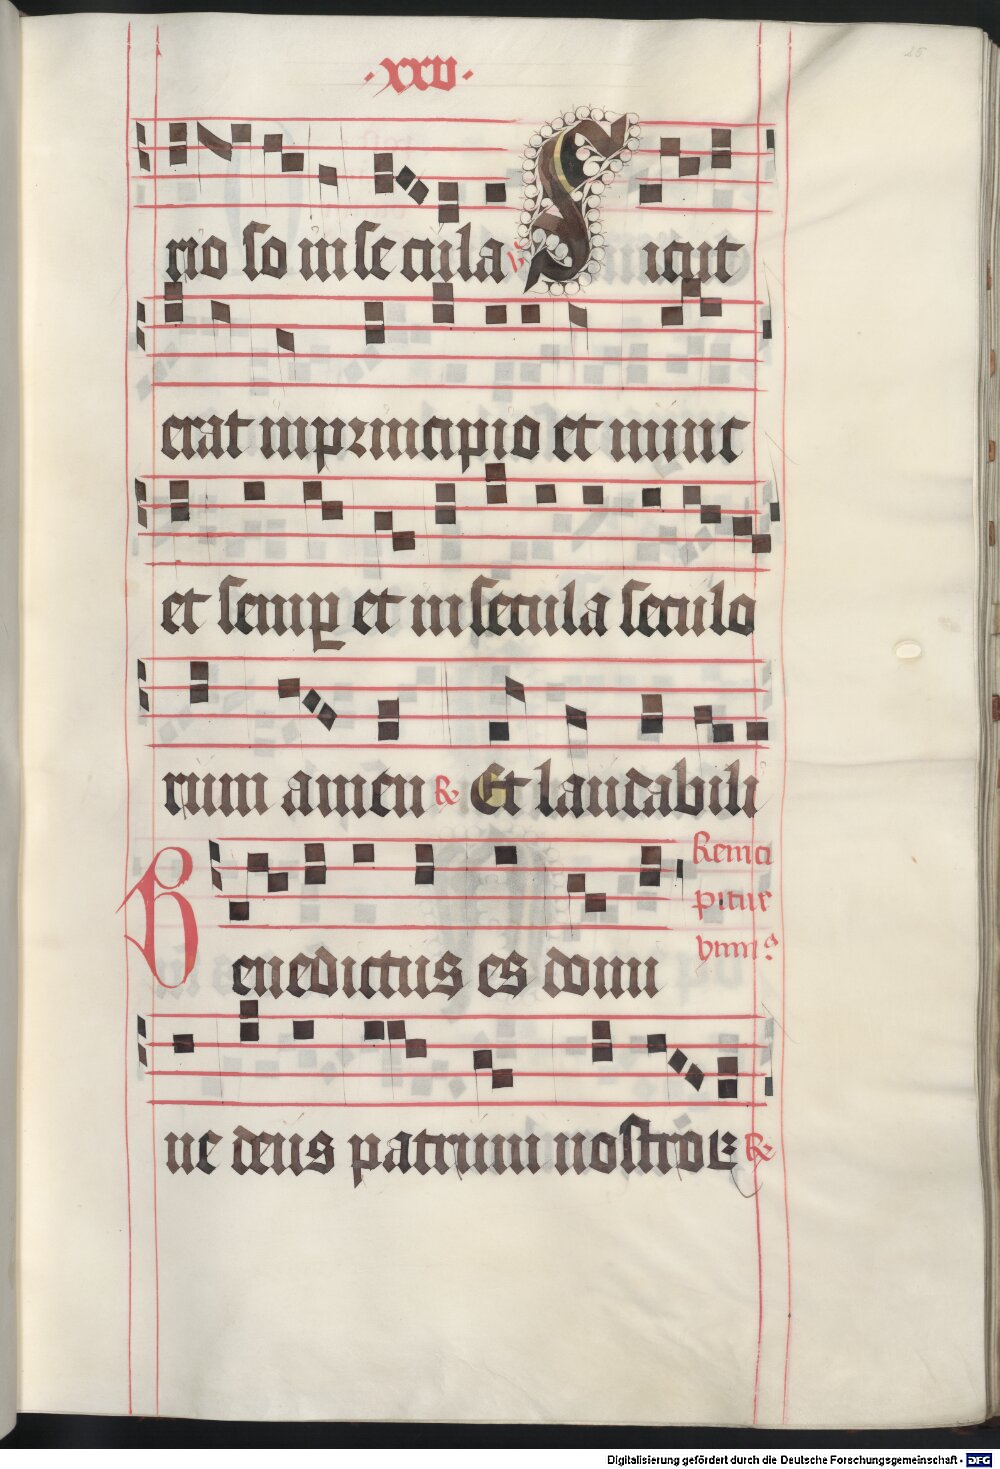 ·xxv·
25
rio so in secula ℣ Sicut
erat in principio et nunc
et semꝑ et in secula seculo
rum amen ℟ Et laudabili
Reinci
pitur
hymnꝰ
Benedictus es domi
ne deus patrum nostroꝝ ℟
Digitalisierung gefördert durch die Deutsche Forschungsgemeinschaft - DFG